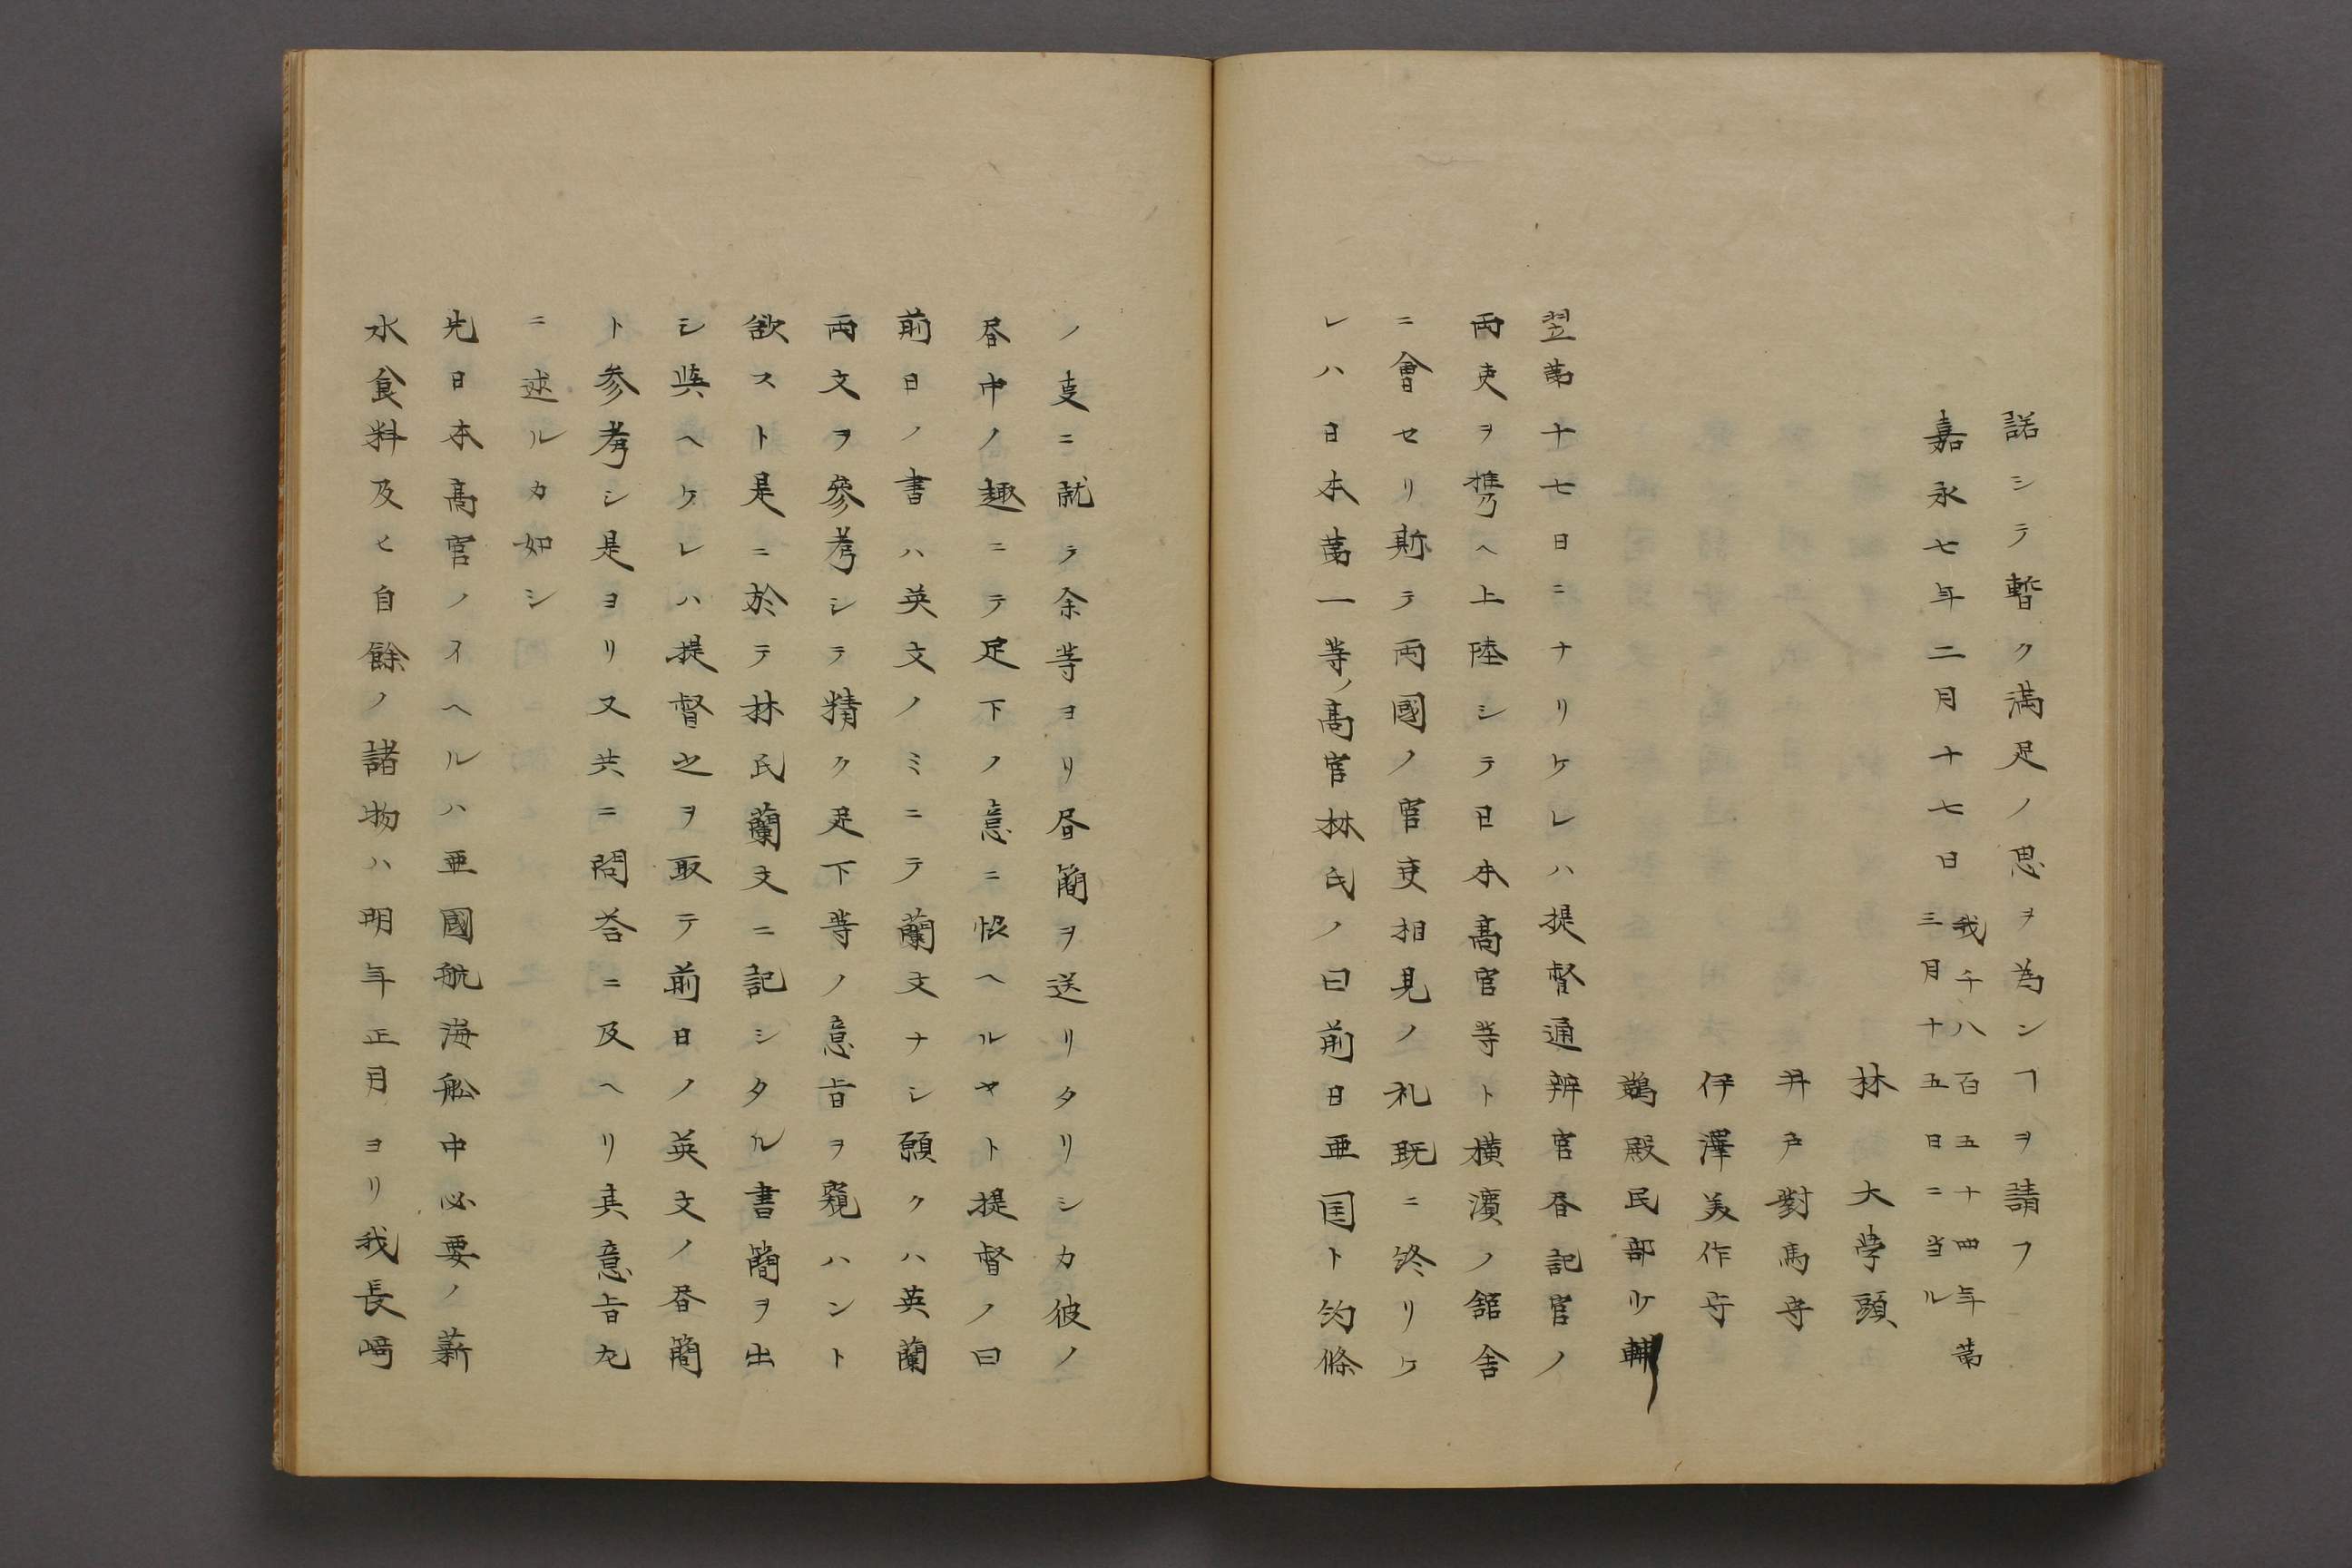 諾シテ暫ク満足ノ思ヲ為ンヿヲ請フ
嘉永七年二月十七日
我千八百五十四年第
三月十五日ニ当ル
林大学頭
井戸對馬守
伊澤美作守
鵜殿民部少輔
翌第十七日ニナリケレハ提督通辨官昏記官ノ
両吏ヲ携ヘ上陸シテ日本高官等ト横濱ノ舘舎
ニ會セリ斯テ両國ノ官吏相見ノ礼既ニ終リケ
レハ日本第一等ノ高官林氏ノ曰前日亜国ト約條
ノ叓ニ就テ余等ヨリ昏簡ヲ送リタリシカ彼ノ
昏中ノ趣ニテ足下ノ意ニ恊ヘルヤト提督ノ曰
前日ノ書ハ英文ノミニテ蘭文ナシ願クハ英蘭
両文ヲ參考シテ精ク足下等ノ意旨ヲ窺ハント
欲スト是ニ於テ林氏蘭文ニ記シタル書簡ヲ出
シ與ヘケレハ提督之ヲ取テ前日ノ英文ノ昏簡
ト参考シ是ヨリ又共ニ問荅ニ及ヘリ其意旨左
ニ述ルカ如シ
先日本高官ノイヘルハ亜國航海舩中必要ノ薪
水食料及ヒ自餘ノ諸物ハ明年正月ヨリ我長﨑